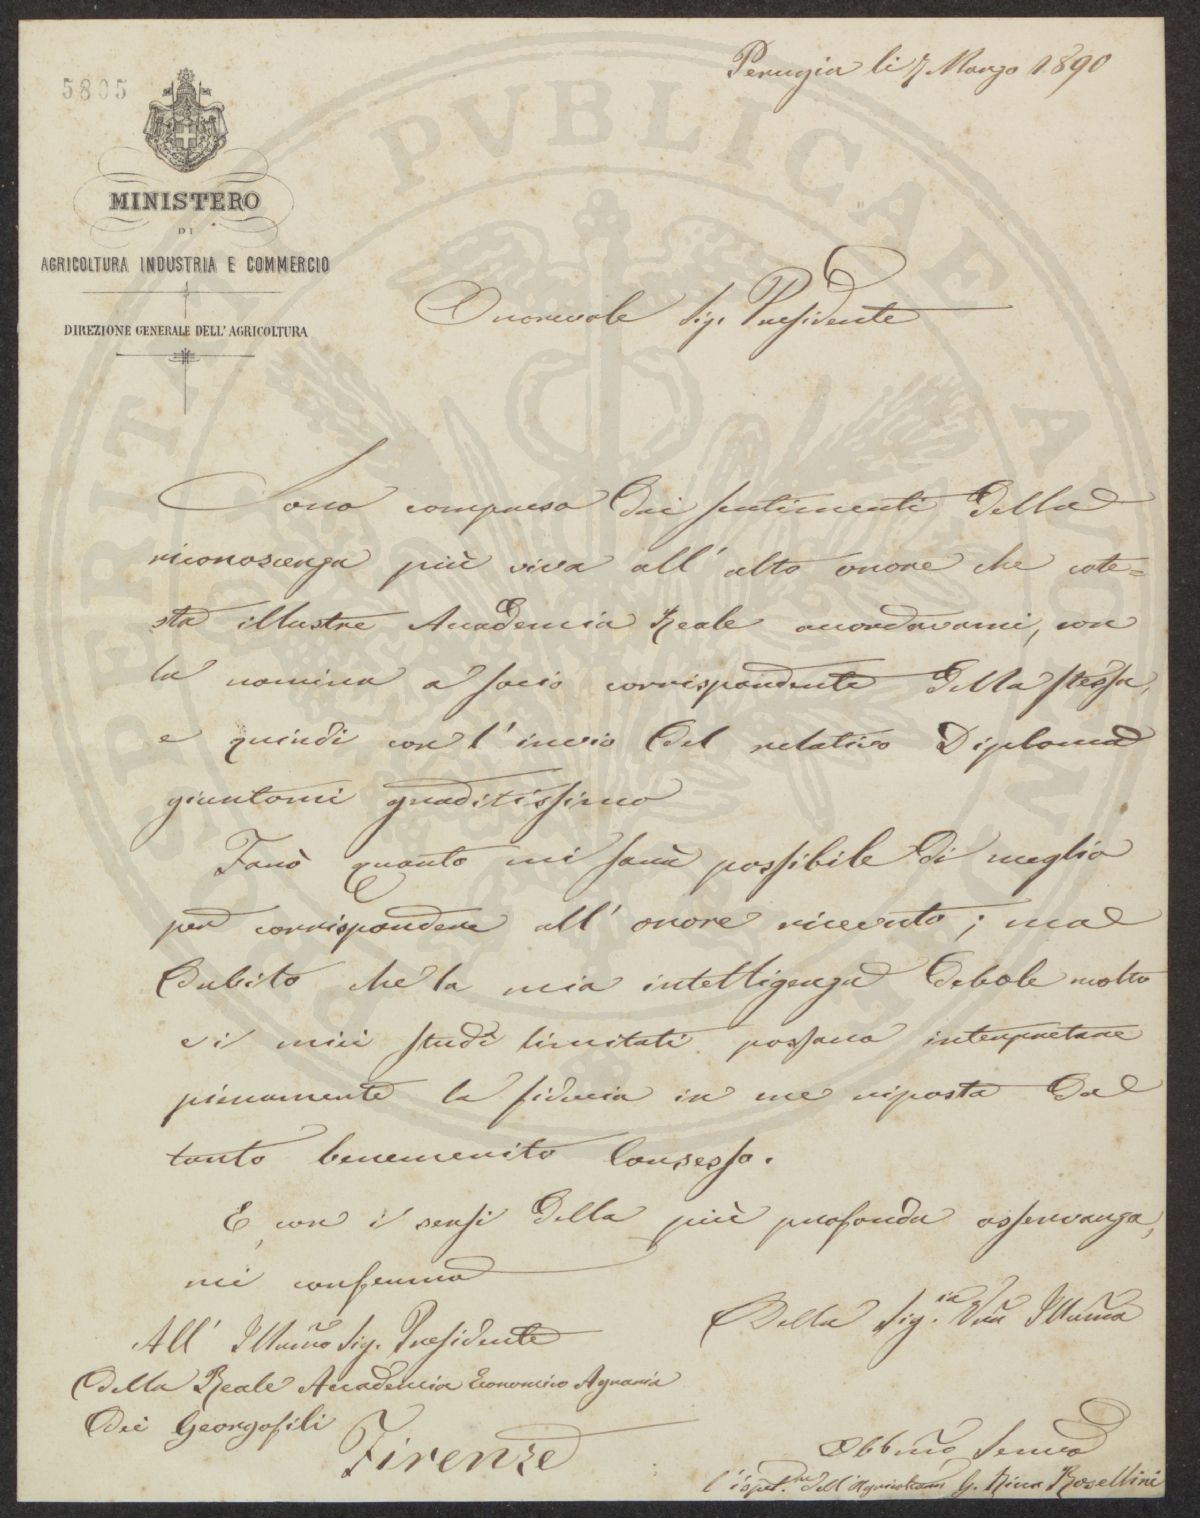 5805
Perugia li 7 Marzo 1890
MINISTERO
DI
AGRICOLTURA INDUSTRIA E COMMERCIO
DIREZIONE GENERALE DELL'AGRICOLTURA
Onorevole Sig. Presidente
Sono compreso dai sentimenti della
riconoscenza più viva all'alto onore che cote=
sta illustre Accademia Reale accordavami, con
la nomina a socio corrispondente della stessa,
e quindi con l'invio del relativo Diploma
giuntomi graditissimo
Farò quanto mi sarà possibile di meglio
per corrispondere all'onore ricevuto; ma
dubito che la mia intelligenza debole molto
e i miei studi limitati possano interpretare
pienamente la fiducia in me riposta dal
tanto benemerito Consesso.
E, con i sensi della più profonda osservanza,
mi confermo
Della Sig.ia Vra Illuma
All' Illumo Sig. Presidente
della Reale Accademia Economico Agraria
dei Georgofili
Firenze
Obbmo Servo
l'ispet.re dell'Agricoltura G. Ricca Rosellini
SPERITATI PVBLICAE AVGENDAE